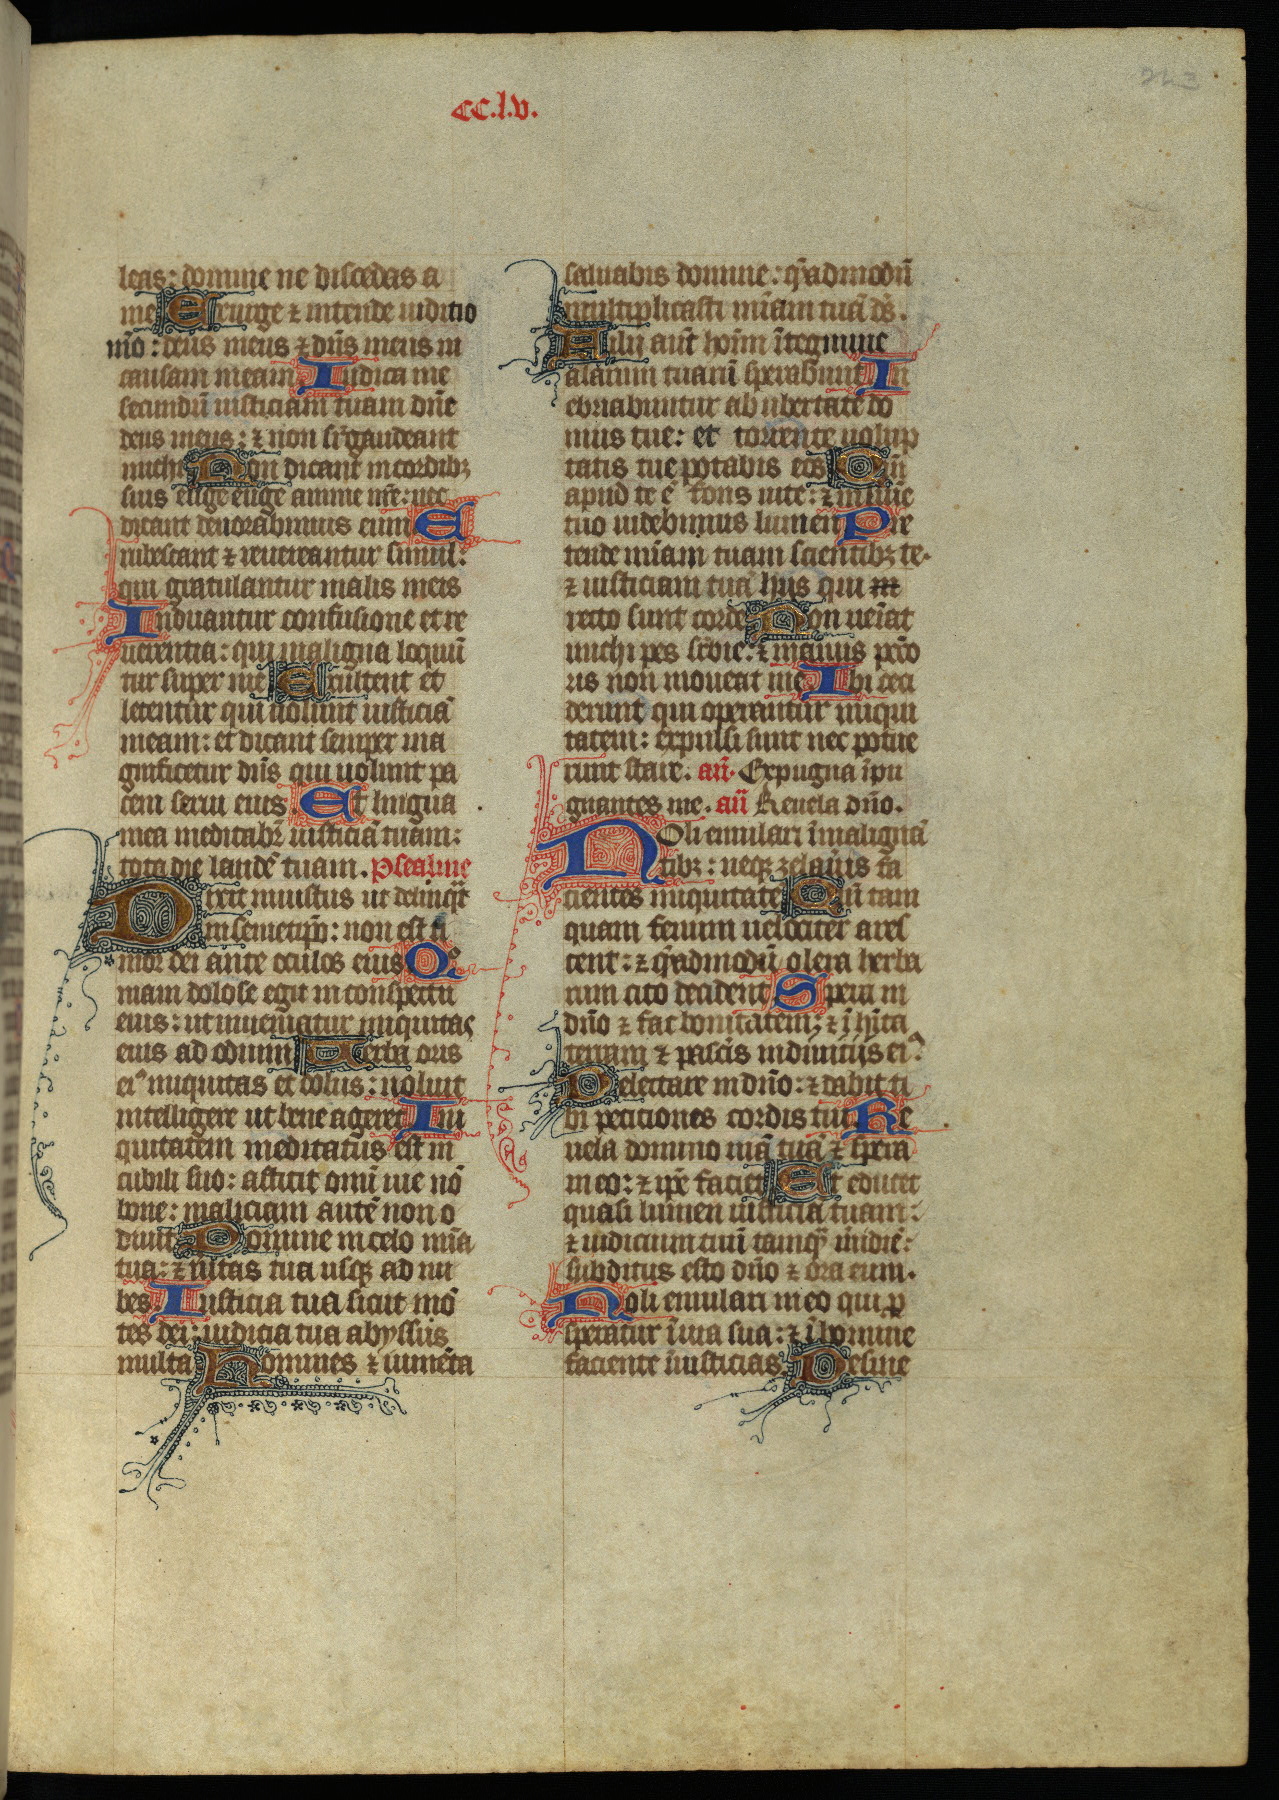 CC.l.v.
leas: domine ne discedas a
me Exurge ⁊ intende iuditio
mẽo: deus meus ⁊ dñs meus in
causam meam Iudica me
secundũ iusticiam tuam dñe
deus meus: ⁊ non suꝑgaudeant
michi Non dicant in cordibꝫ
suis euge euge anime nr̃e: nec
dicant deuorabimus eum E
rubescant ⁊ reuereantur simul:
qui gratulantur malis meis
Induantur confusione et re
uerentia: qui maligna loquũ
tur super me Exultent et
letentur qui uolunt iusticiã
meam: et dicant semper ma
gnificetur dñs qui uolunt pa
cem serui eius Et lingua
mea meditabit̃ iusticiã tuam:
tota die laudẽ tuam. Psealme
Dixit iniustus ut delinq̃t
in semetip̃o: non est ti
mor dei ante oculos eius Qo
niam dolose egit in conspectu
eius: ut inueniatur iniquitas
eius ad odium Uerba oris
eiꝰ iniquitas et dolus: noluit
intelligere ut bene ageret Ini
quitatem meditatus est in
cubili suo: astitit omi uie nõ
bone: maliciam autẽ non o
diuit Domine in celo mĩa
tua: ⁊ uĩtas tua usqꝫ ad nu
bes Iusticia tua sicut mõ
tes dei: iudicia tua abyssus
multa Homines ⁊ iumẽta
saluabis domine: q̃admodũ
multiplicasti mĩam tuã dš.
Filii aũt hom̃ ĩ tegmine
alarum tuarũ sperabunt In
ebriabuntur ab ubertate do
mus tue: et torrente uolup
tatis tue potabis eos Qm̃
apud te ẽ fons uite: ⁊ in lumĩe
tuo uidebimus lumen Pre
tende mĩam tuam scientibꝫ te.
⁊ iusticiam tuã hijs qui
recto sunt corde Non ueĩat
michi pes sub̃ie: ⁊ manus pcc̃o
ris non moueat me Ibi ceci
derunt qui operantur iniqui
tatem: expulsi sunt nec potue
runt stare. añ. Expugna ĩpu
gnantes me. añ Reuela dño.
Noli emulari ĩ malignã
tibꝫ: neqꝫ zelaũis fa
cientes iniquitatẽ Qm̃ tam
quam fenum uelociter ares
cent: ⁊ q̃admodũ olera herba
rum cito decident Spera in
dño ⁊ fac bonitatem: ⁊ ĩhĩta
terram ⁊ pascĩs in diuitijs eiꝰ
Delectare in dño: ⁊ dabit ti
bi petitiones cordis tui Re
uela domino uiã tuã ⁊ spera
in eo: ⁊ ip̃e faciet Et educet
quasi lumen iusticiã tuam:
⁊ iudicium tuũ tamq̃ m̃idiẽ:
subditus esto dño ⁊ ora eum.
Noli emulari in eo qui ꝓ
speratur ĩ uia sua: ⁊ ĩ homine
faciente ĩiusticias Desine